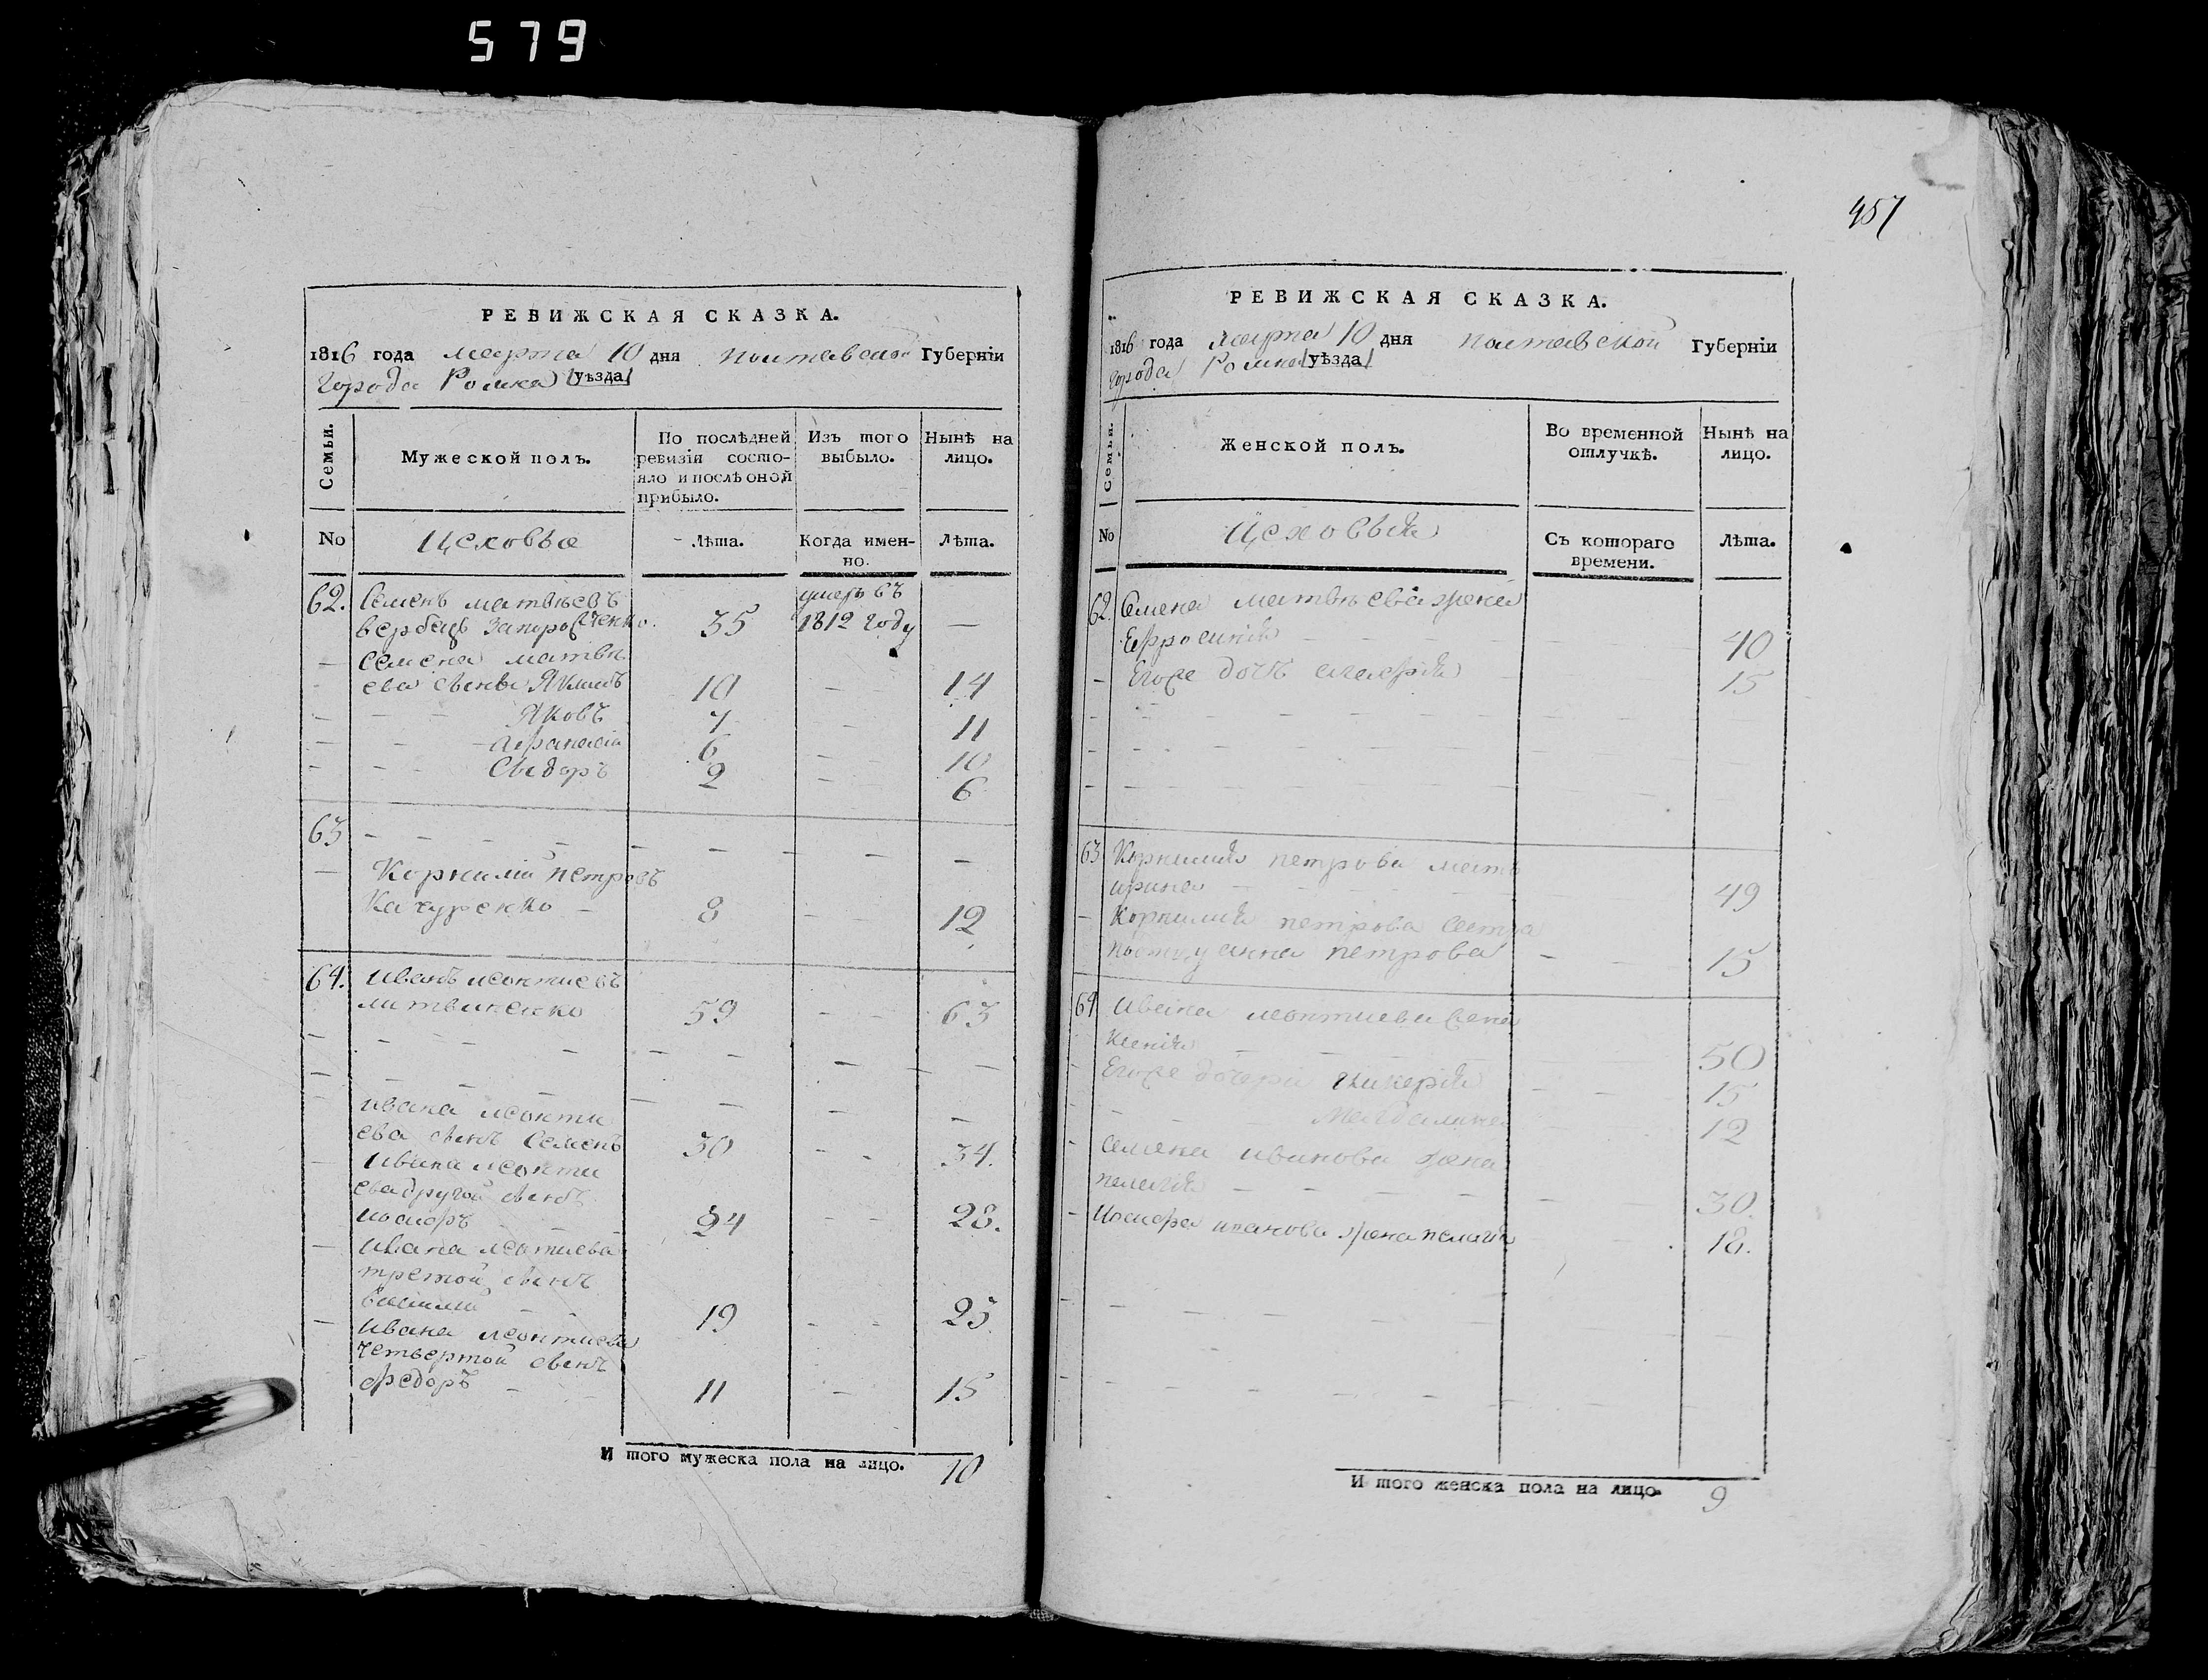 579
РЕВИЖСКАЯ СКАЗКА.
1816 года марта 10 дня полтавской Губерніи
города Ромна уѣзда
Семьи.
Мужеской полъ.
По послѣдней ревизіи состояло и послѣ оной прибыло.
Изъ того выбыло.
Нынѣ на лицо.
No
Цеховые
Лѣта.
Когда именно.
Лѣта.
62. Семенъ матвѣевъ
умеръ въ
35 1812 году —
Семена матвѣ
ева сынъ Якимъ 10 14
Яковъ 7 11
Афанасій 6 10
Сидоръ 2 6
63
Корнилій петровъ
Качуренко 8 12
64. Иванъ леонтиевъ
литвиненко 59 63
ивана леонти
ева сынъ Семенъ 30 34.
Ивана леонти
ева другой сынъ
24 28.
Ивана леонтиева
третой сынъ
василий 19 23
Ивана леонтиева
четвертой сынъ
федоръ 11 15
И того мужеска пола на лицо. 10
457
РЕВИЖСКАЯ СКАЗКА.
1816 года марта 10 дня полтавской Губерніи
города Ромна уѣзда
Семьи.
Женской полъ.
Во временной отлучкѣ.
Нынѣ на лицо.
No
Съ котораго времени.
Лѣта.
62. Семена матвѣева жена
Ефросинія 40
Егоже дочь 15
63 Корнилия петрова мать
ирина 49
Корнилия петрова сестра
анна петрова 15
64 Ивана леонтиева жена
Ксенія 50
Егоже дочери 15
12
Семена иванова жена
пелагія 30.
иванова жена пелагія 18.
И того женска пола на лицо. 9